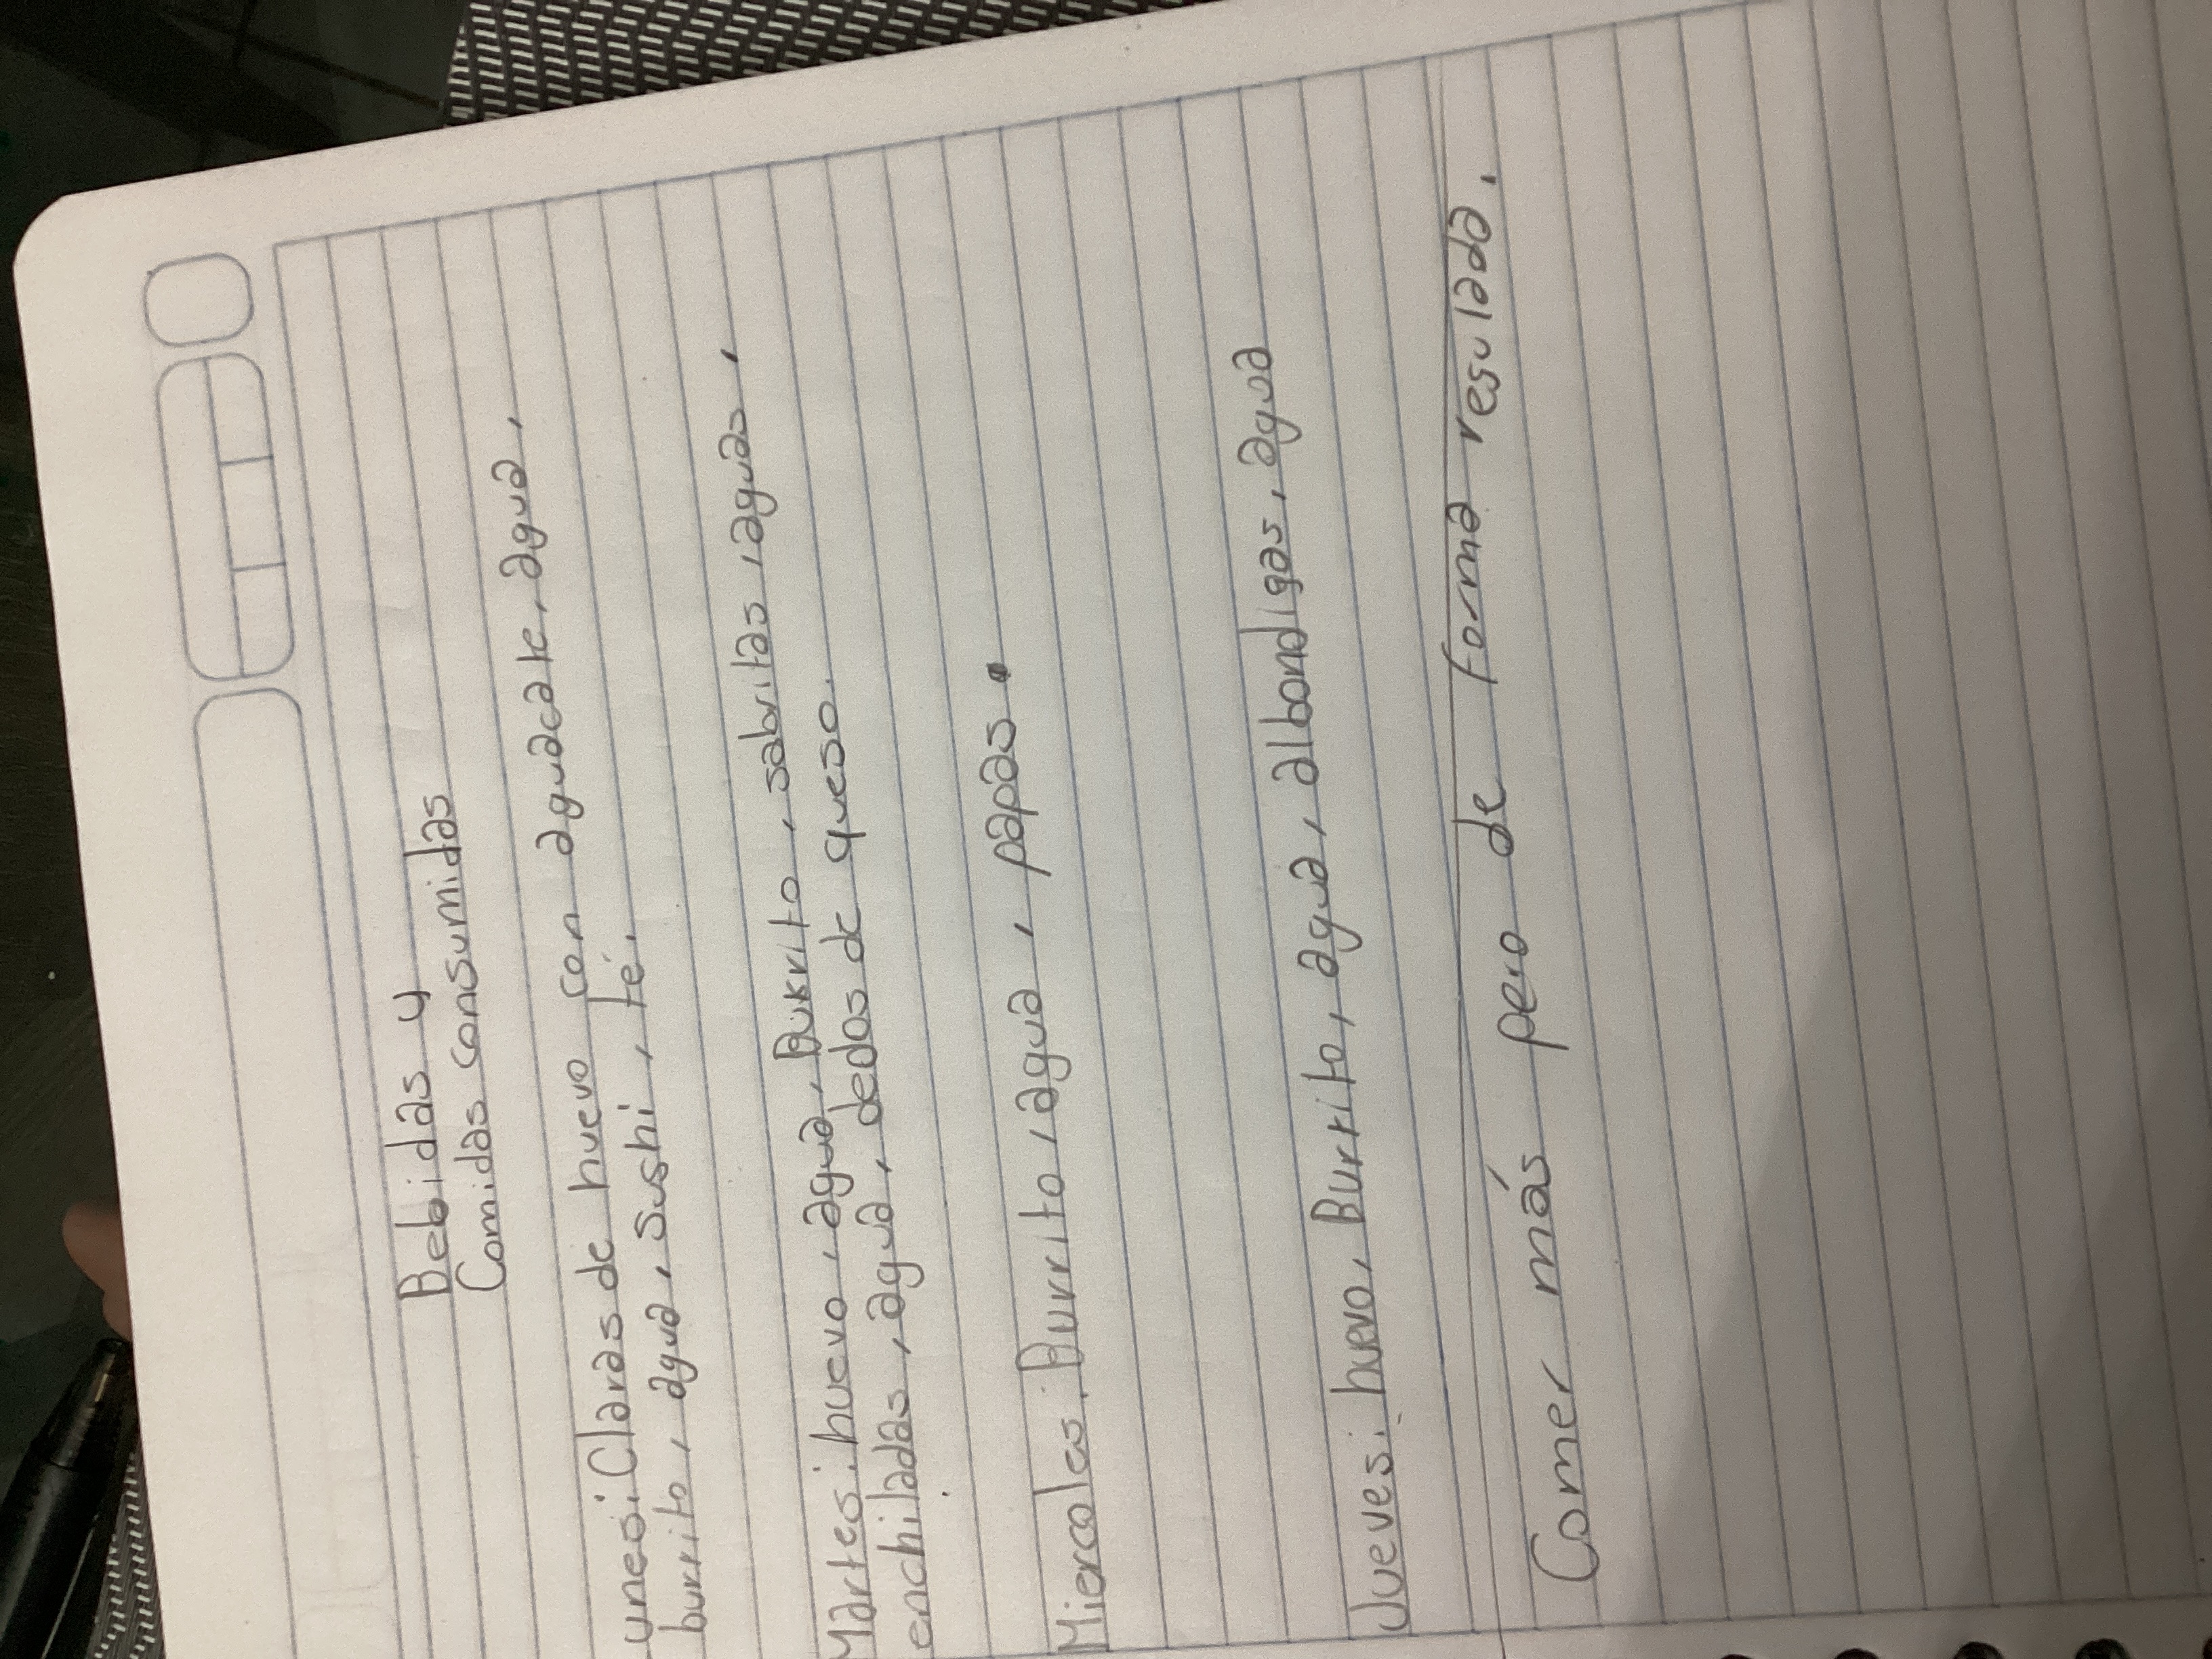 Bebidas y
Comidas consumidas
unes: Claras de huevo con aguacate, agua,
burrito, agua, Sushi, té.
Martes: huevo, agua, Burrito, sabritas, aguas,
enchiladas, agua, dedos de queso.
Miercoles: Burrito, agua, papas.
Jueves: huevo, Burrito, agua, albondigas, agua
Comer más pero de forma regulada.